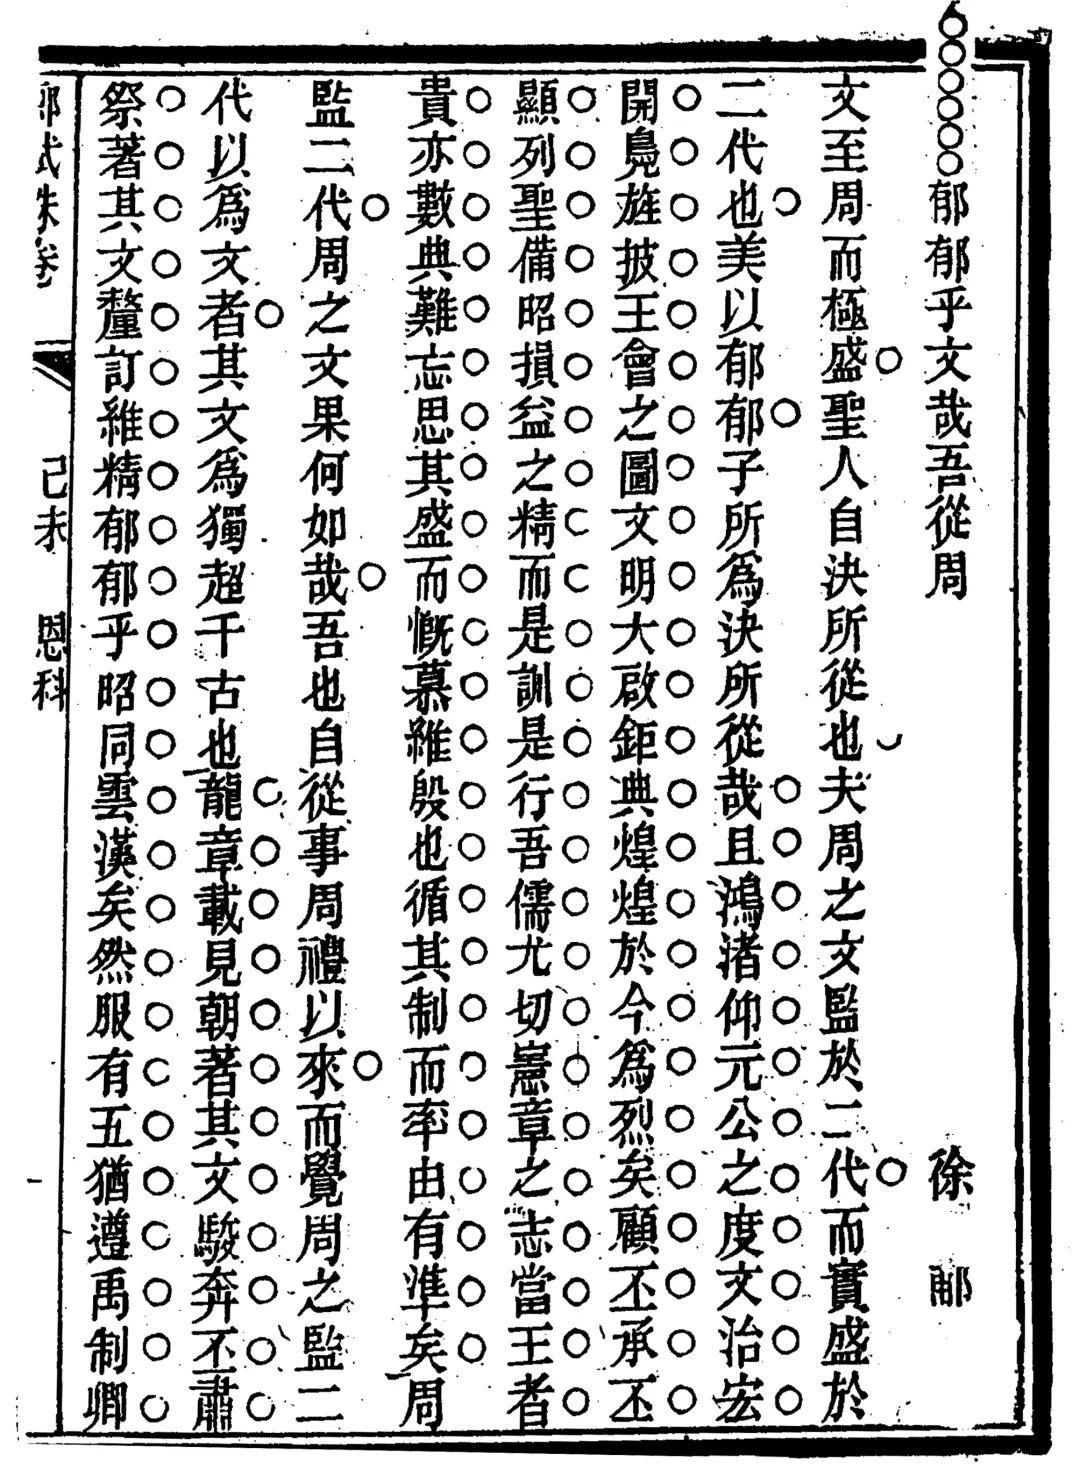 郁郁乎文哉吾從周　徐郙
文至周而極盛聖人自決所從也夫周之文監於二代而實盛於
二代也美以郁郁子所爲決所從哉且鴻渚仰元公之度文治宏
開鳧旌披王會之圖文明大啟鉅典煌煌於今爲烈矣顧丕承丕
顯列聖備昭損益之精而是訓是行吾儒尤切憲章之志當王者
貴亦數典難忘思其盛而慨慕維殷也循其制而率由有準矣周
監二代周之文果何如哉吾也自從事周禮以來而覺周之監二
代以爲文者其文爲獨超千古也龍章載見朝著其文駿奔丕肅
祭著其文釐訂維精郁郁乎昭同雲漢矣然服有五猶遵禹制卿
鄉試硃卷　己未　恩科